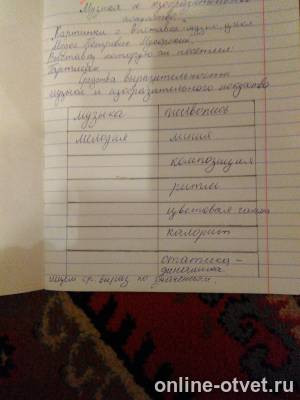 Музыка и изобразительное
искусство.
Картинки с выставки музык. цикл
Модест Петрович Мусоргский.
Выставка, которую он посетил
Гартмана.
Средства выразительности
музыки и изобразительного искусства
музыка живопись
мелодия линия
композиция
ритм
цветовая гамма
калорит
статика -
динамика
ищем ср. выраз по значениям.
online-otvet.ru